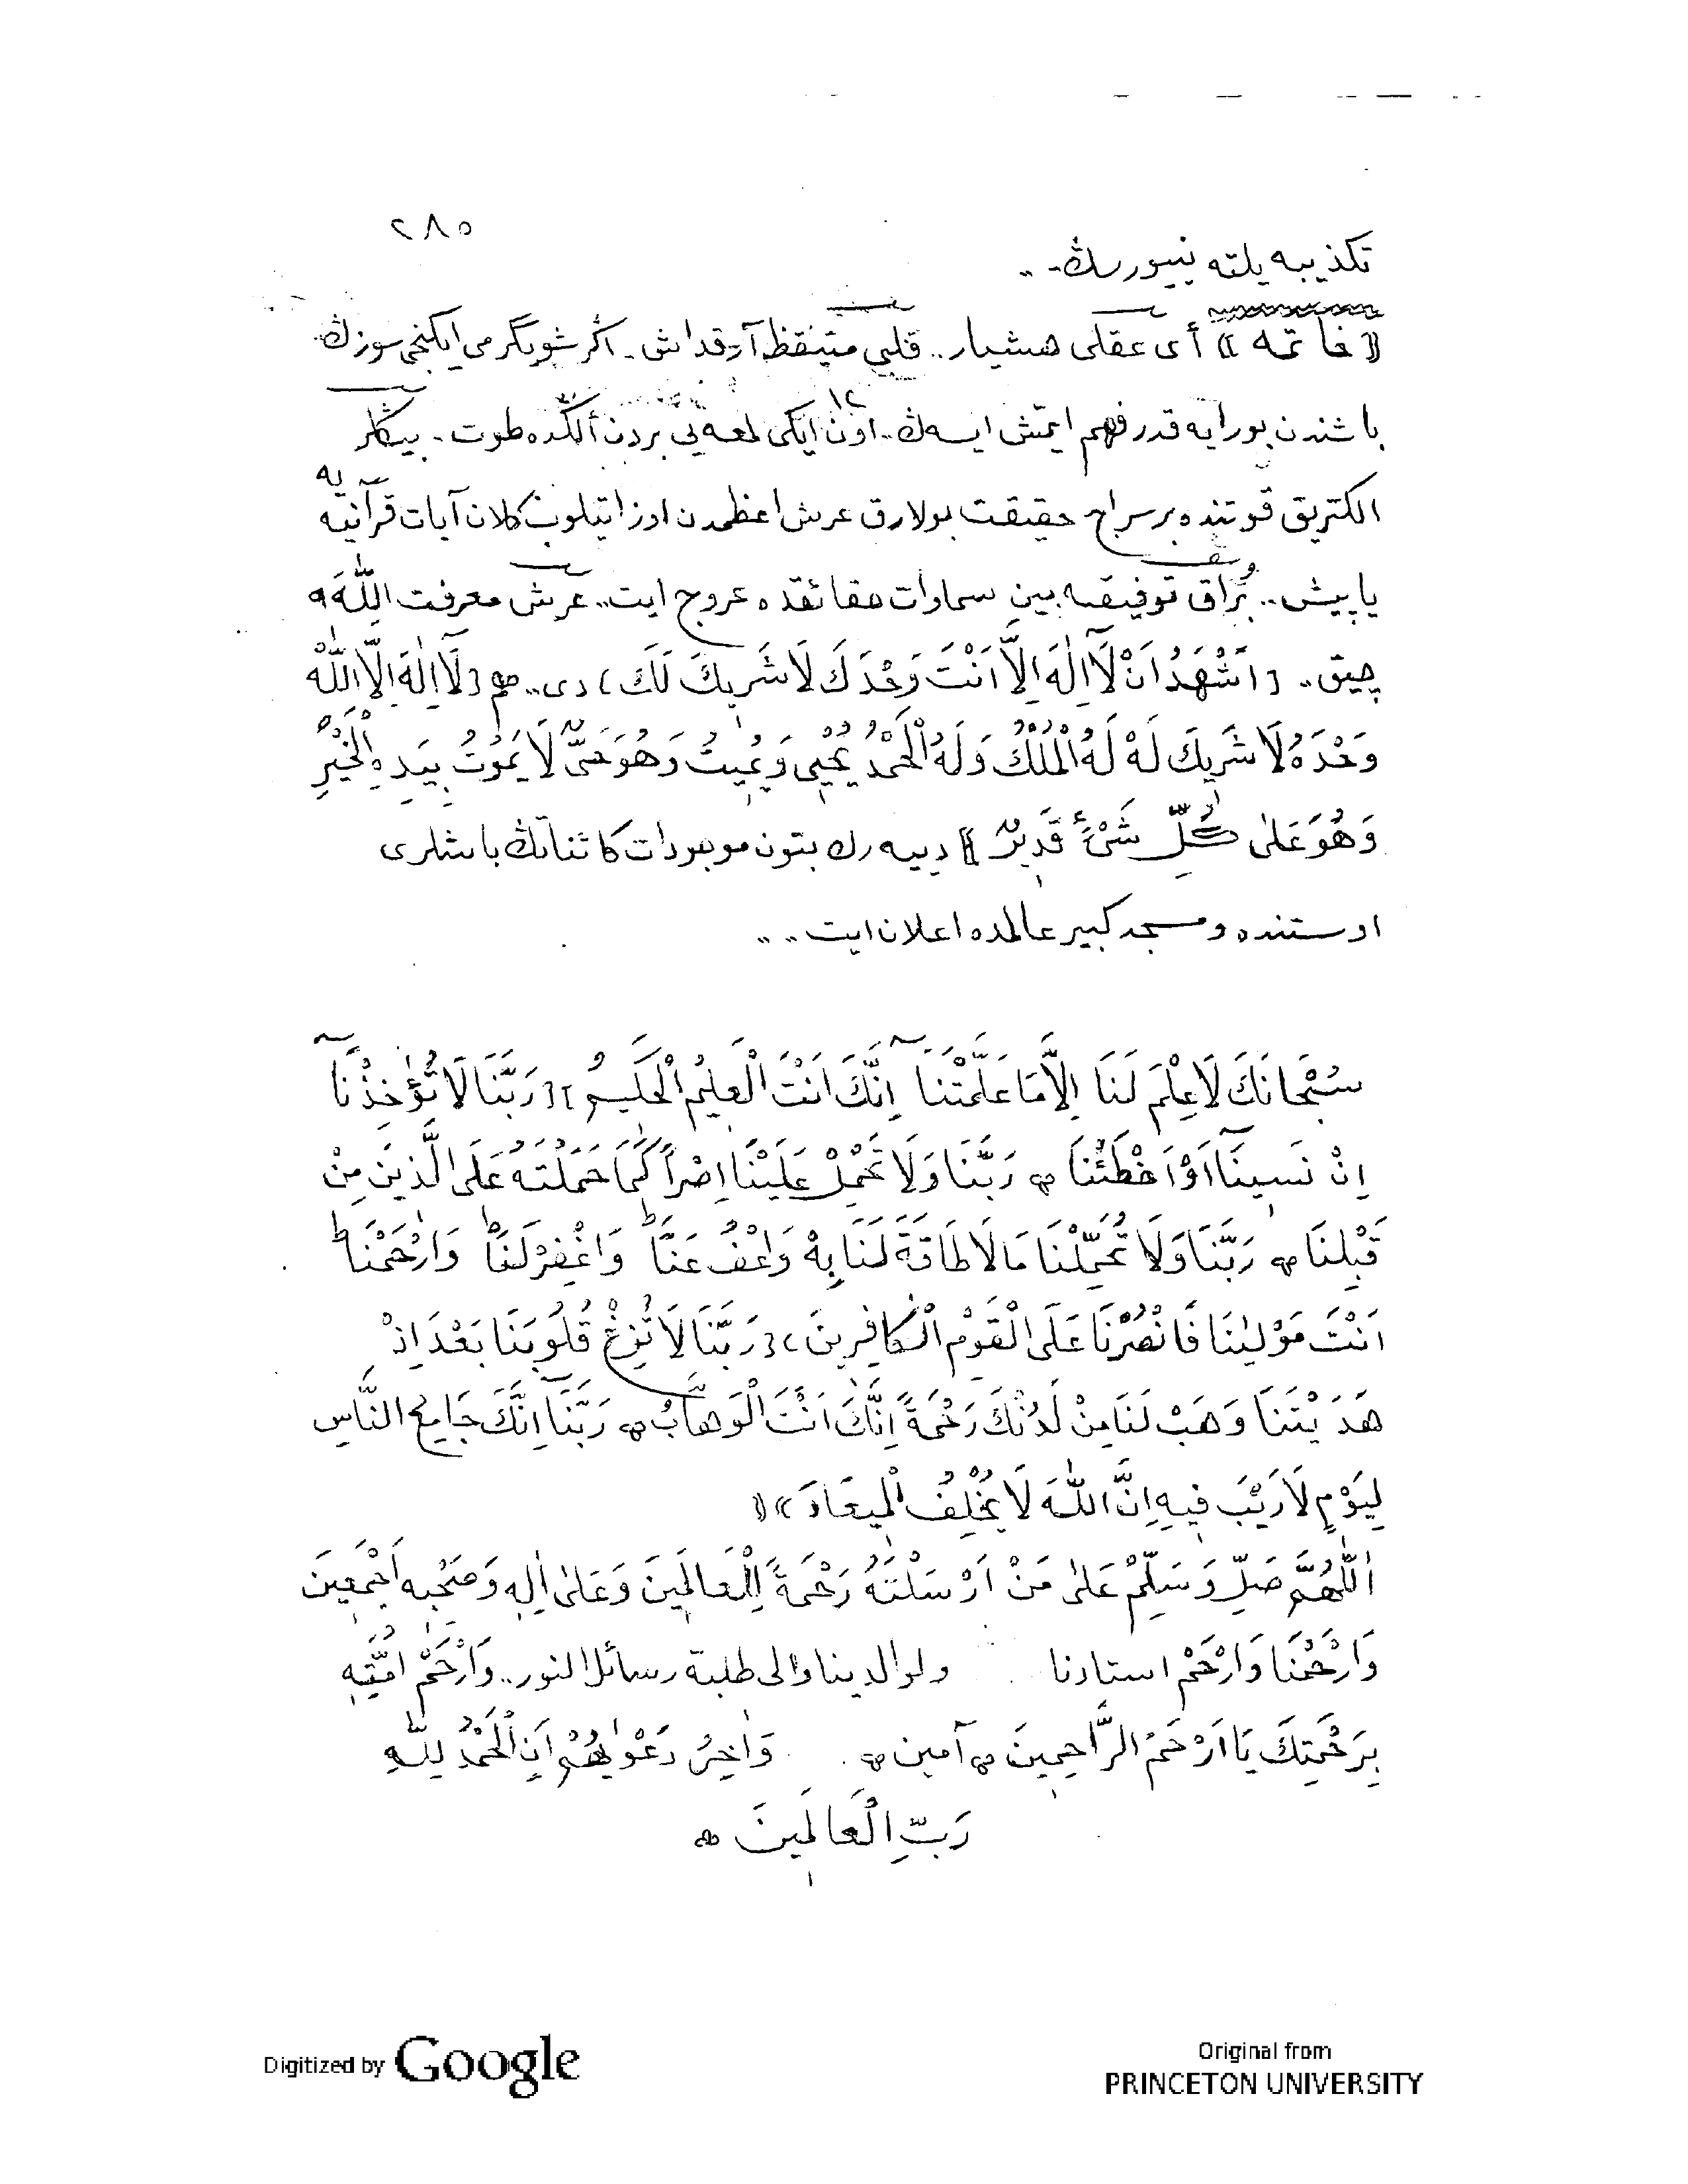 ٢٨٥
تكذيبه يلته نييورسڭ..
«خاتمه» أى عقلى هشيار.. قلبى متيقظ آرقداش. اڭر شو يگرمى ايكنجى سوزڭ
باشندن بورايه قدر فهم ايتمش ايسه ڭ.. اون ايكى لمعه يى بردن ألڭده طوت. بيڭلر
١٢
الكتريق قوتنده بر سراج حقيقت بولارق عرش اعظمدن اوزاتيلوب كلان آيات قرآنيه يه
ياپيش.. بُراق توفيقه بين سماوات حقائقده عروج ايت.. عرش معرفت اللّٰهه
چيق.. {اَشْهَدُ اَنْ لَآ اِلٰهَ اِلَّا اَنْتَ وَحْدَكَ لَا شَرِيكَ لَكَ} دى.. هم {لَآ اِلٰهَ اِلَّا اللّٰهُ
وَحْدَهُ لَا شَرِيكَ لَهُ لَهُ الْمُلْكُ وَلَهُ الْحَمْدُ يُحْيِى وَيُمِيتُ وَهُوَ حَىٌّ لَا يَمُوتُ بِيَدِهِ الْخَيْرُ
وَهُوَ عَلٰى كُلِّ شَىْءٍ قَدِيرٌ» دييه رك بتون موجودات كائناتڭ باشلرى
اوستنده ومسجد كبير عالمده اعلان ايت...
سُبْحَانَكَ لَا عِلْمَ لَنَا اِلَّا مَا عَلَّمْتَنَا اِنَّكَ اَنْتَ الْعَلِيمُ الْحَكِيمُ} {رَبَّنَا لَا تُؤٰخِذْنَآ
اِنْ نَسِينَآ اَوْ اَخْطَئْنَا ۞ رَبَّنَا وَلَا تَحْمِلْ عَلَيْنَا اِصْرًا كَمَا حَمَلْتَهُ عَلَى الَّذِينَ مِنْ
قَبْلِنَا ۞ رَبَّنَا وَلَا تُحَمِّلْنَا مَا لَا طَاقَةَ لَنَا بِهْ وَاعْفُ عَنَّا ط وَاغْفِرْ لَنَا ط وَارْحَمْنَا ط
اَنْتَ مَوْلٰينَا فَانْصُرْنَا عَلَى الْقَوْمِ الْكَافِرِينَ} {رَبَّنَا لَا تُزِغْ قُلُوبَنَا بَعْدَ اِذْ
هَدَيْتَنَا وَهَبْ لَنَا مِنْ لَدُنْكَ رَحْمَةً اِنَّكَ اَنْتَ الْوَهَّابُ ۞ رَبَّنَآ اِنَّكَ جَامِعُ النَّاسِ
لِيَوْمٍ لَا رَيْبَ فِيهِ اِنَّ اللّٰهَ لَا يُخْلِفُ الْمِيعَادَ»
اَللّٰهُمَّ صَلِّ وَسَلِّمْ عَلٰى مَنْ اَرْسَلْتَهُ رَحْمَةً لِلْعَالَمِينَ وَعَلٰى اٰلِهِ وَصَحْبِهِ اَجْمَعِينَ
وَارْحَمْنَا وَارْحَمْ استادنا ولوالدينا والى طلبة رسائل النور.. وَارْحَمْ اُمَّتِهِ
بِرَحْمَتِكَ يَا اَرْحَمَ الرَّاحِمِينَ ۞ آمين ۞ وَاٰخِرُ دَعْوٰيهُمْ اَنِ الْحَمْدُ لِلّٰهِ
رَبِّ الْعَالَمِينَ ۞
Digitized by Google
Original from
PRINCETON UNIVERSITY